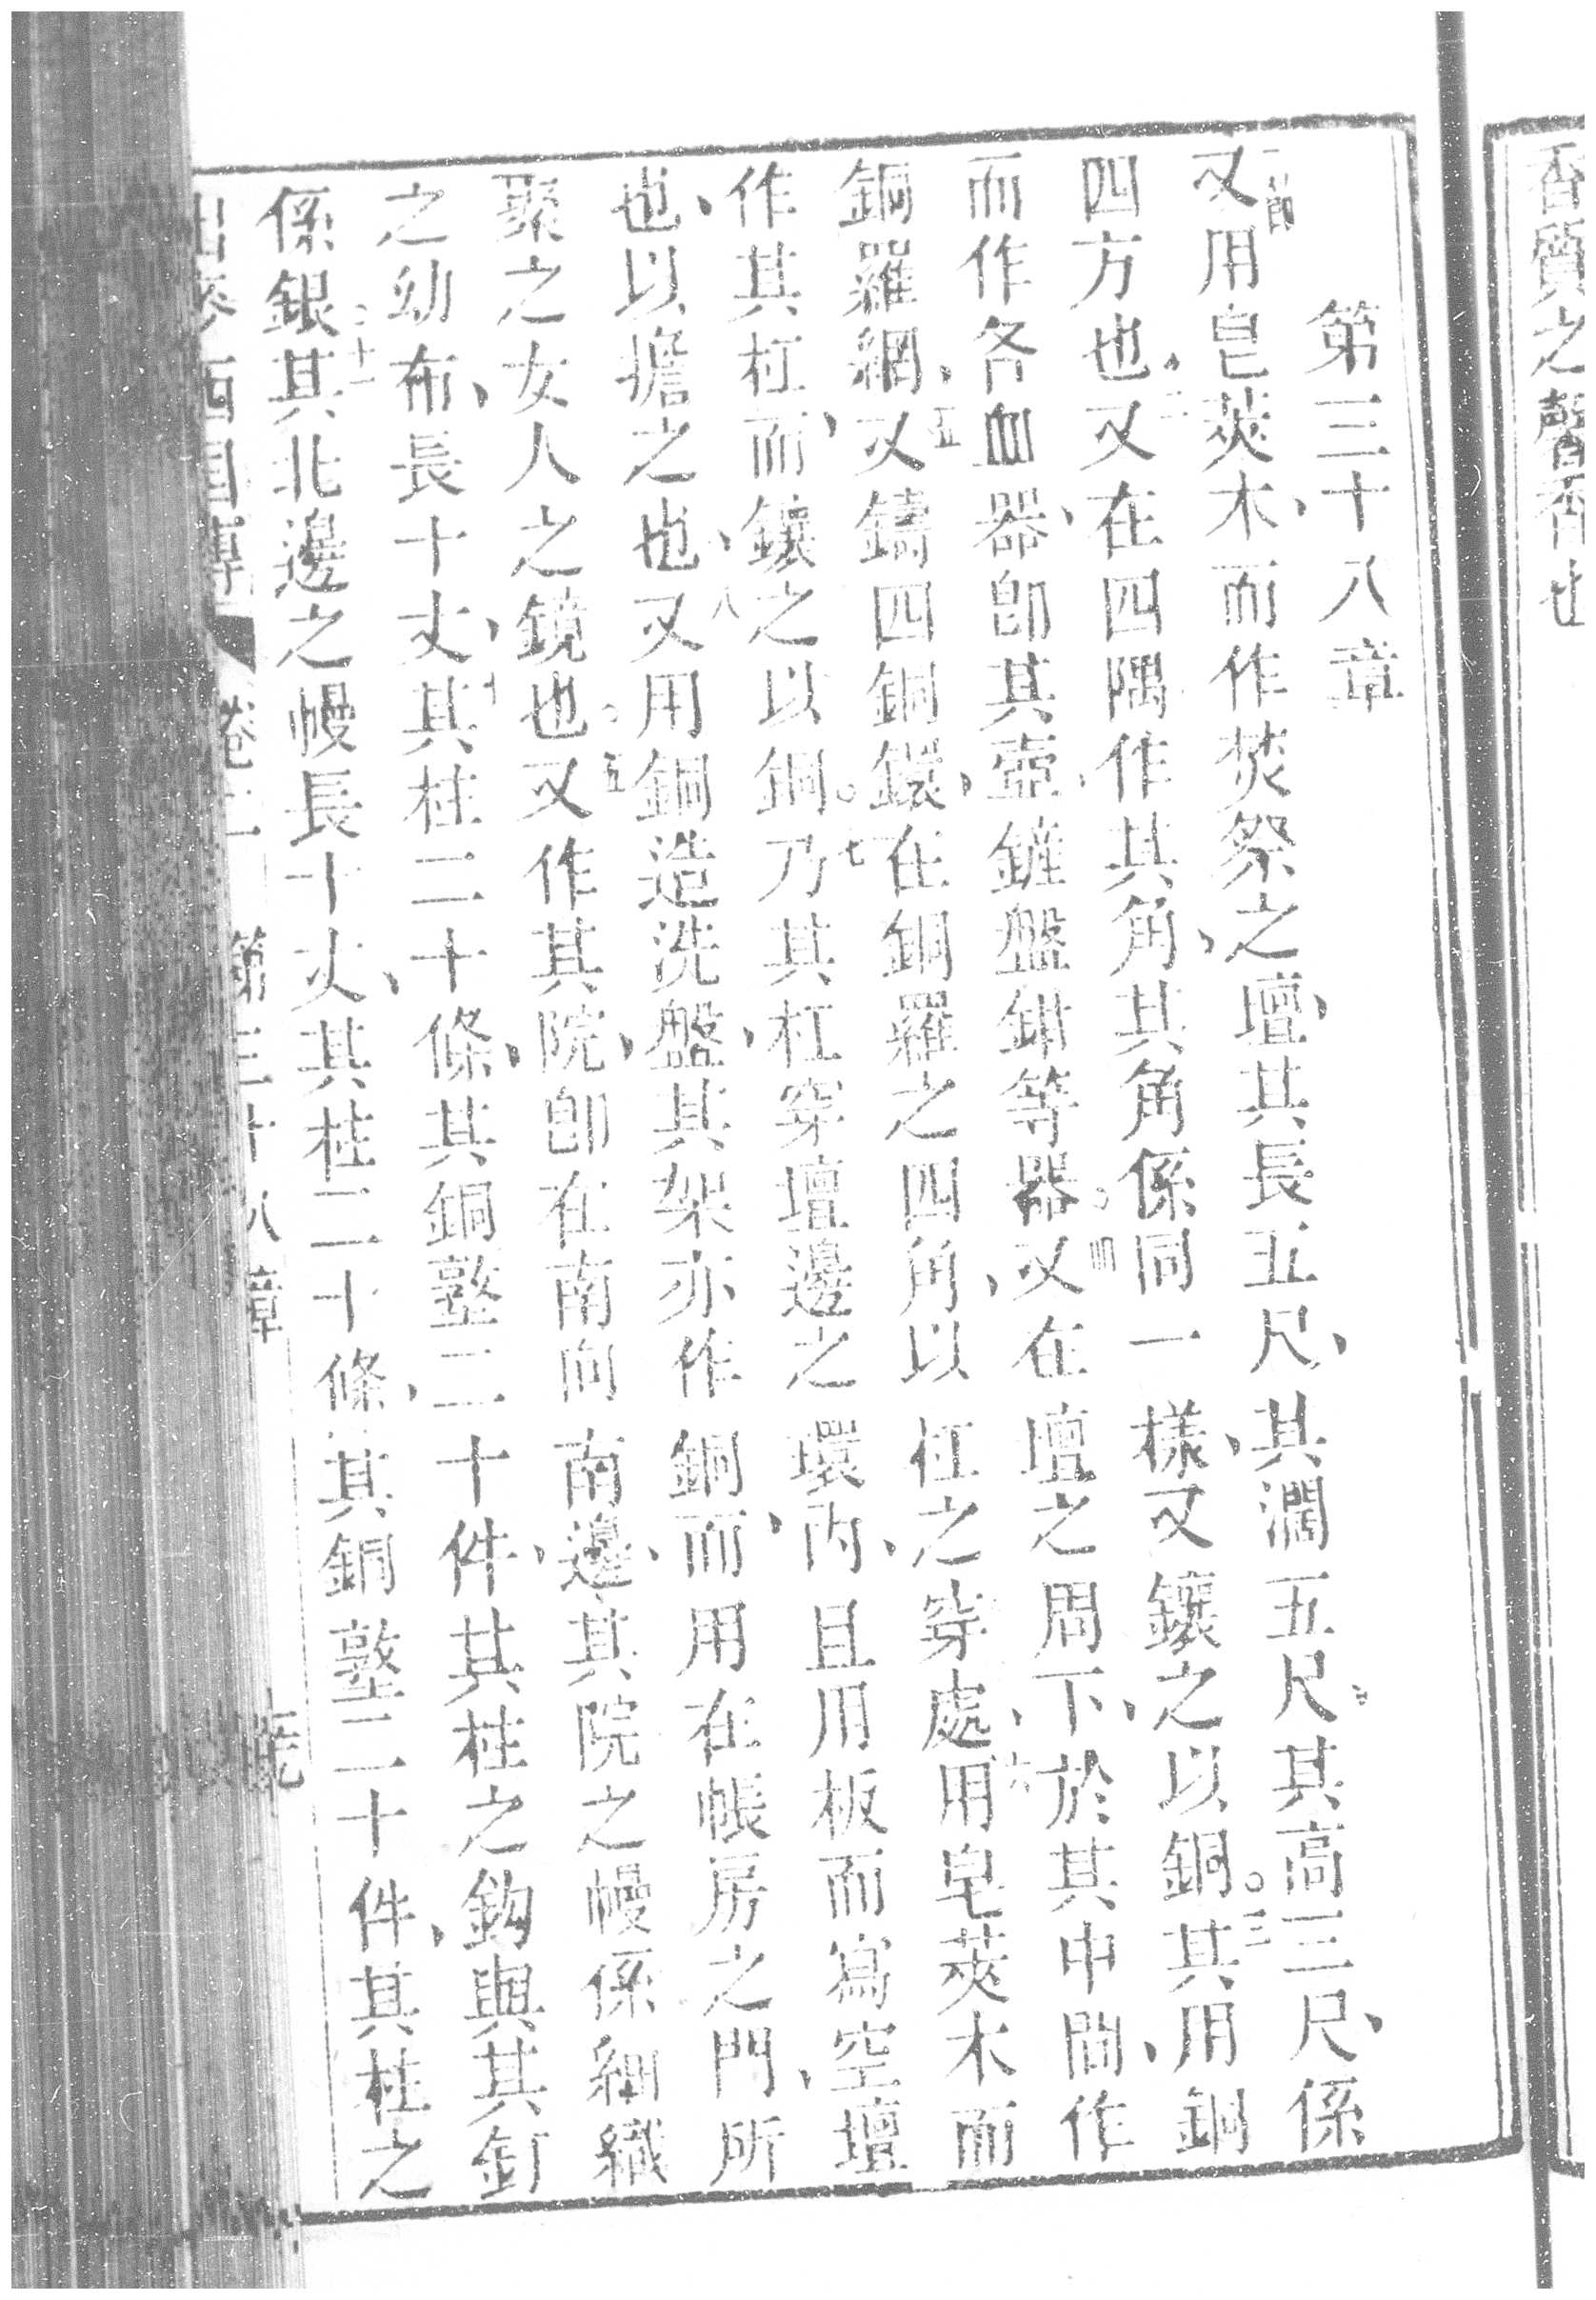 香質之馨香也
第三十八章
一節又用皂莢木而作焚祭之壇、其長五尺、其濶五尺。其高三尺、係
四方也。二又在四隅作其角、其角係同一樣、又鑲之以銅。三其用銅
而作各血器、即其壺、鏟盤鉗等器。四又在壇之周下、於其中間、作
銅羅網、五又鑄四銅鐶、在銅羅之四角、以杠之穿處、六用皂莢木而
作其杠、而鑲之以銅。七乃其杠穿壇邊之環內、且用板而寫空壇
也、以擔之也、八又用銅造洗盤、其架亦作銅、而用在帳房之門、所
聚之女人之鏡也。九又作其院、即在南向南邊、其院之幔係細織
之幼布、長十丈、十其柱二十條、其銅墪二十件、其柱之鈎與其釘
係銀。十一其北邊之幔長十丈、其柱二十條、其銅墪二十件、其柱之
出麥西國傳 卷二 第三十八章